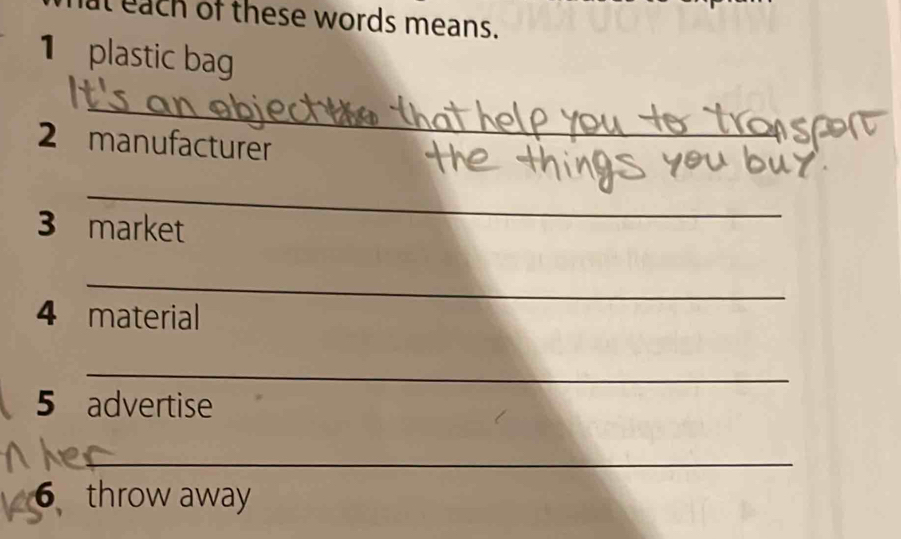 each of these words means.
1 plastic bag
It's an object that help you to transport
the things you buy.
2 manufacturer
3 market
4 material
5 advertise
n her
6 throw away